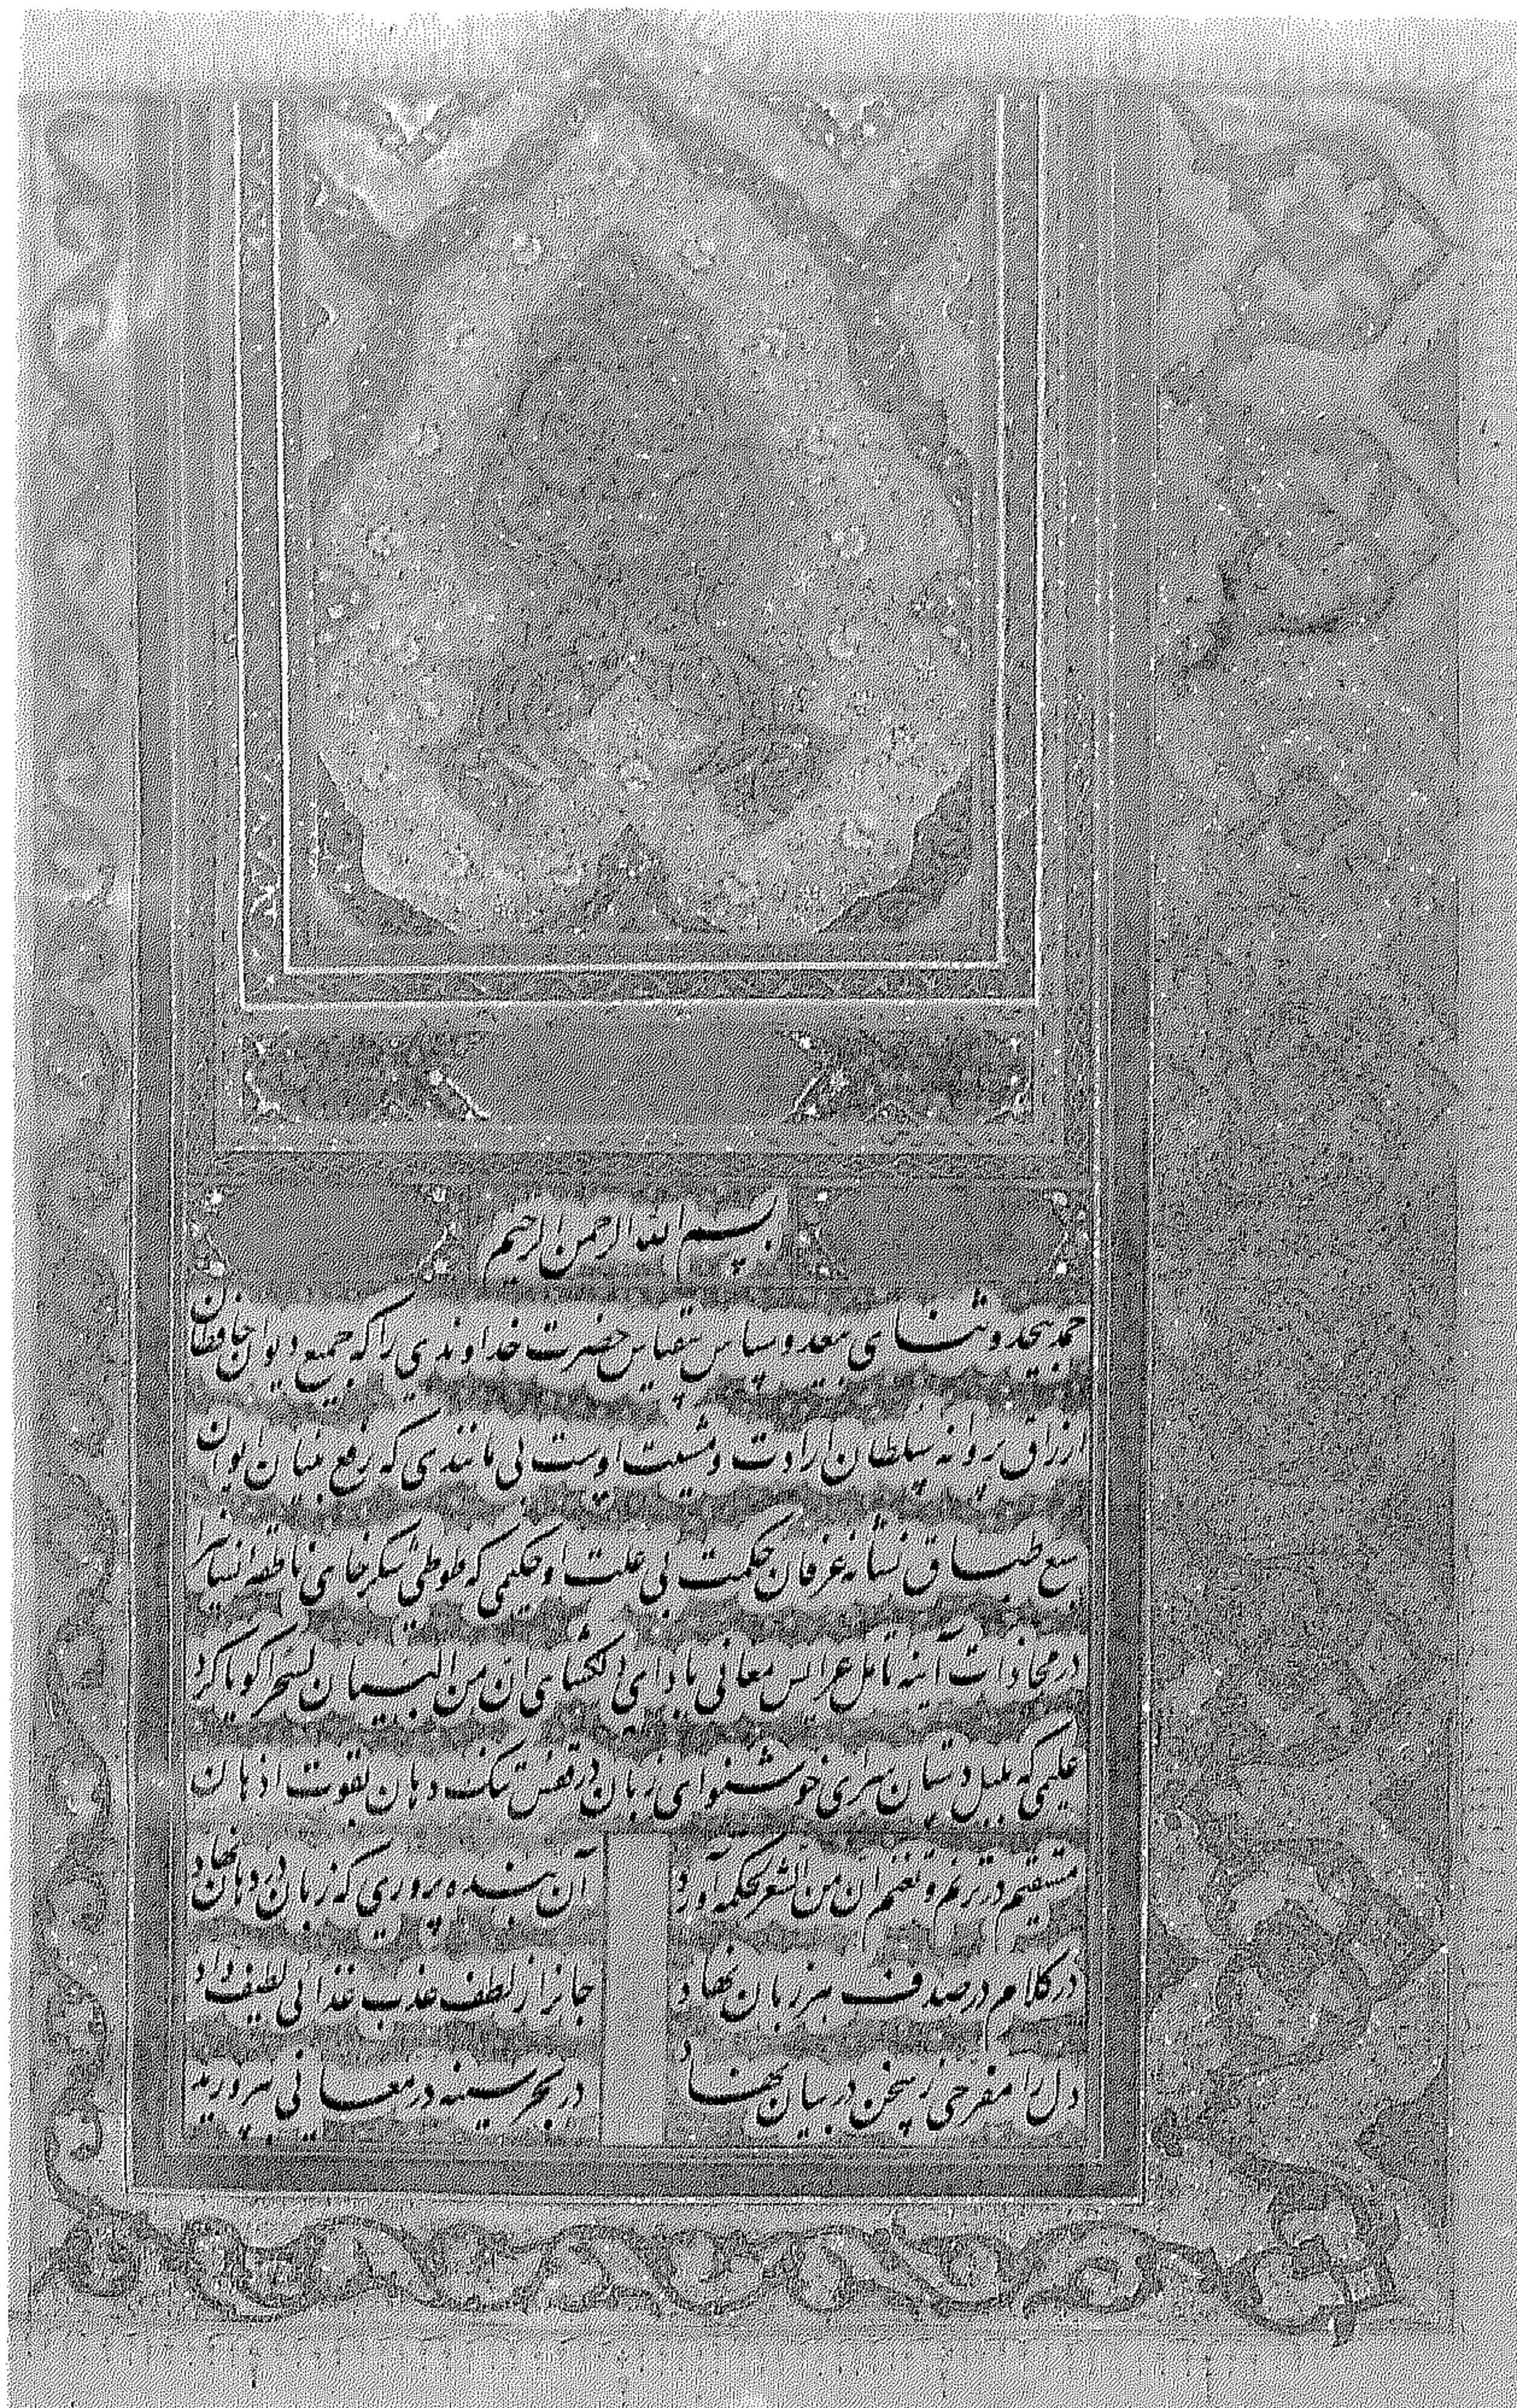 بسم الله الرحمن الرحیم
حمد بیحد و ثنای بیعد و سپاس بیقیاس حضرت خداوندی را که جمیع دیوان حافظان
ارزاق پروانه سلطان ارادت و مشیت اوست بی مانندی که رفع بنیان ایوان
سبع طباق نشانه عرفان حکمت بی علت او حکیمی که طوطی شکرخای ناطقه انسانرا
در محاذات آینه تامل عرایس معانی بادای دلکشای ان من البیان لسحرا کویا کرد
علیمی که بلبل دستان سرای خوشنوای زبان در قفس تنک دهان بقوت اذهان
مستقیم در ترنم و تنغم ان من الشعر لحکمه آورد آن بنده پروری که زبان در دهان نهاد
در کلام در صدف هر زبان نهاد جانرا ز لطف عذب غذائی لطیف داد
دل را مفرحی ز سخن در بیان نهاد در بحر سینه در معانی بپرورید